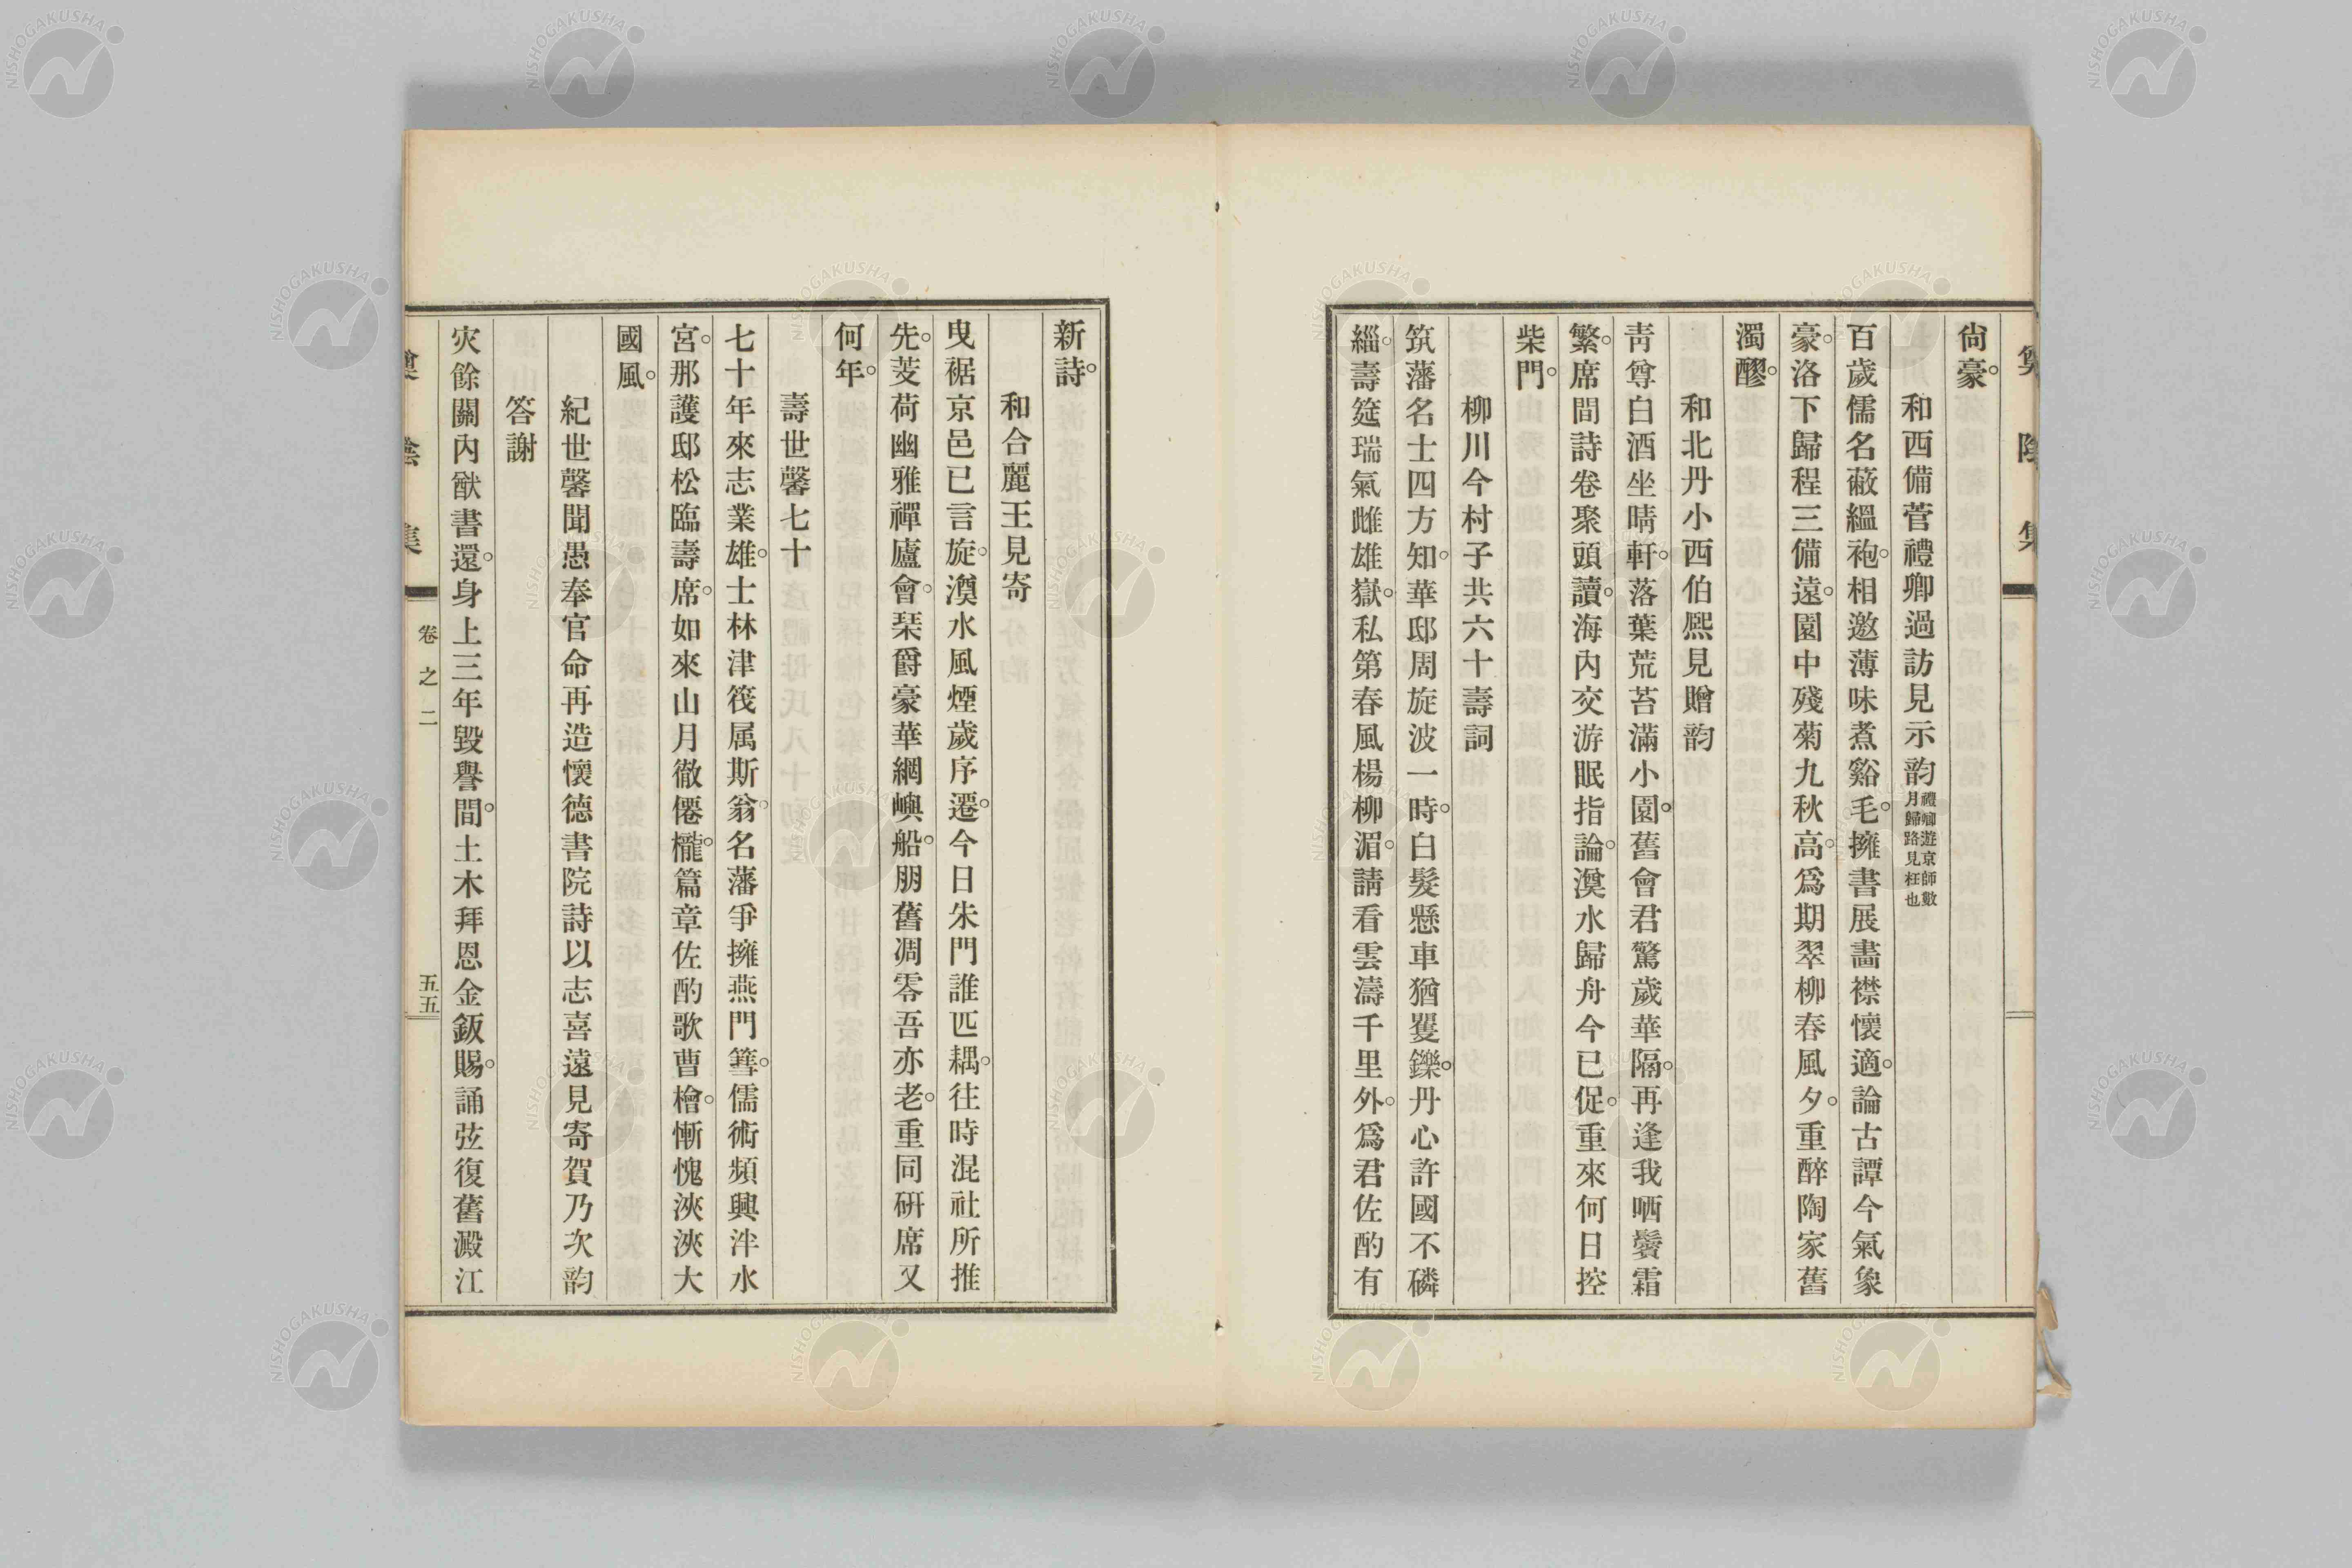 尙豪。
和西備菅禮卿過訪見示韵
禮卿遊京師數
月歸路見枉也
百歲儒名蔽縕袍。相邀薄味煮谿毛。擁書展畵襟懷適。論古譚今氣象
豪。洛下歸程三備遠。園中殘菊九秋高。爲期翠柳春風夕。重醉陶家舊
濁醪。
和北丹小西伯熙見贈韵
靑尊白酒坐晴軒。落葉荒苔滿小園。舊會君驚歲華隔。再逢我哂鬢霜
繁。席間詩卷聚頭讀。海內交游眠指論。澳水歸舟今已促。重來何日控
柴門。
柳川今村子共六十壽詞
筑藩名士四方知。華邸周旋波一時。白髮懸車猶矍鑠。丹心許國不磷
緇。壽筵瑞氣雌雄嶽。私第春風楊柳湄。請看雲濤千里外。爲君佐酌有
新詩。
和合麗王見寄
曳裾京邑已言旋。澳水風煙歲序遷。今日朱門誰匹耦。往時混社所推
先。芰荷幽雅禪廬會。琹爵豪華網嶼船。朋舊凋零吾亦老。重同硏席又
何年。
壽世馨七十
七十年來志業雄。士林津筏属斯翁。名藩爭擁燕門篲。儒術頻興泮水
宮。那護邸松臨壽席。如來山月徹僊櫳。篇章佐酌歌曹檜。慚愧浹浹大
國風。
紀世馨聞愚奉官命再造懷德書院詩以志喜遠見寄賀乃次韵
答謝
灾餘關內猷書還。身上三年毀譽間。土木拜恩金鈑賜。誦弦復舊澱江
卷之二
五五